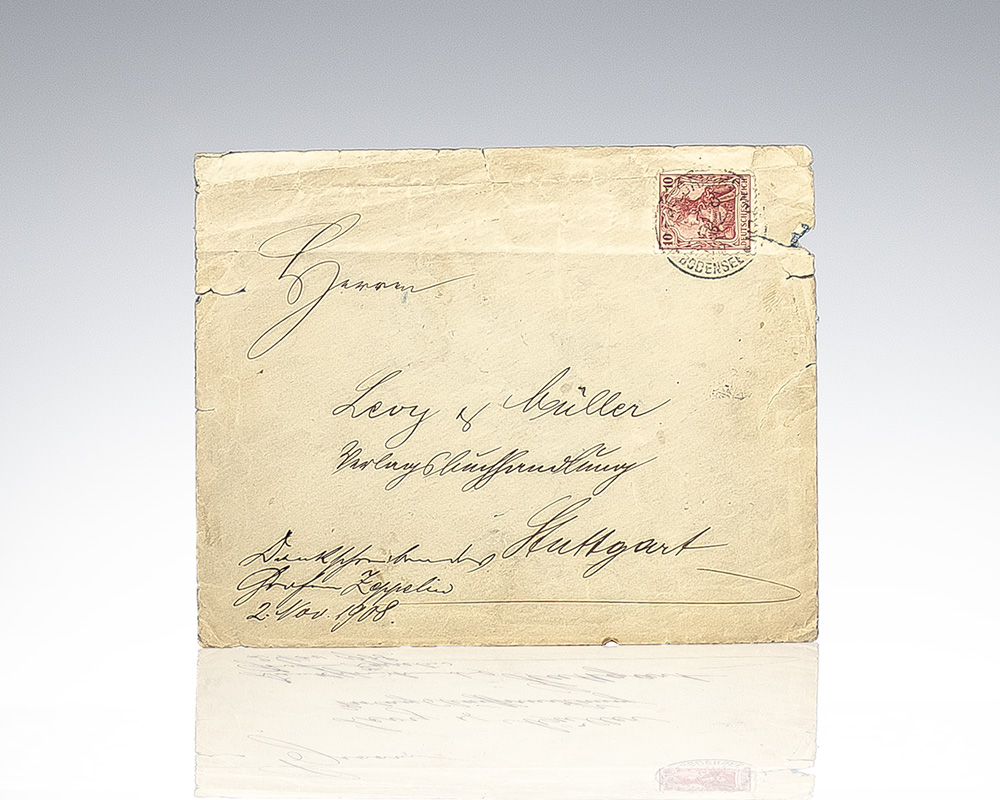 10
10
DEUTSCHES REICH
BODENSEE
Herren
Levy & Müller
Verlagsbuchhandlung
Stuttgart
Dankschreiben des
Grafen Zeppelin
2. Nov. 1908.